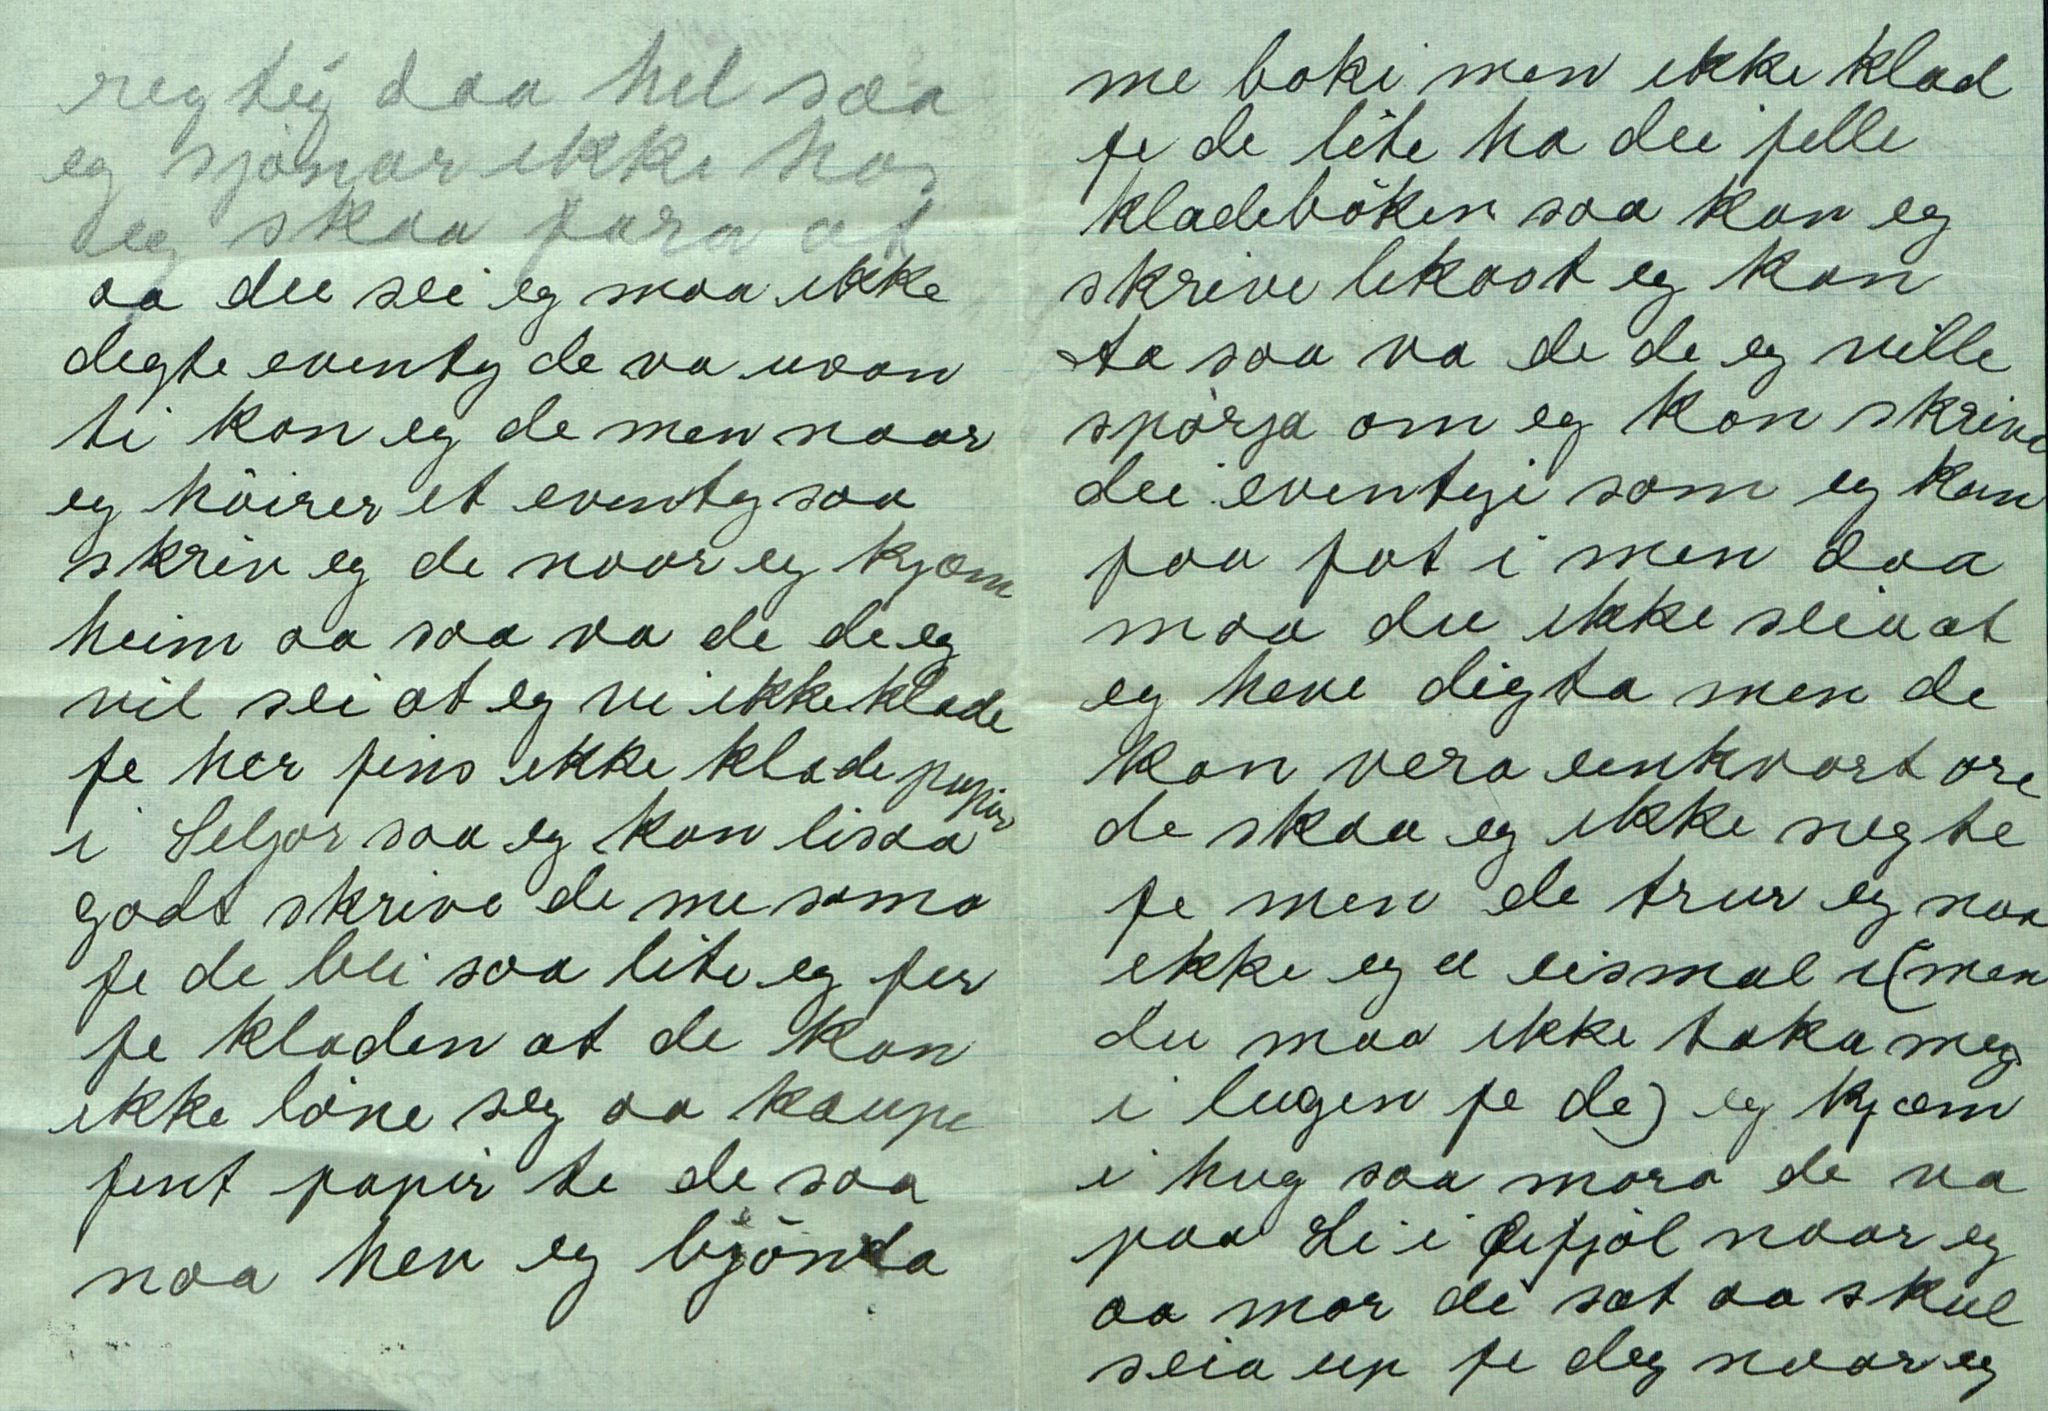 regtig daa hel saa
eg sjönar ikke hos
deg skaa fara at
aa du sei eg maa ikke
degte eventy de va uvan
ti kan eg de men naar
eg höirer et eventy saa
skriv eg de naar eg kjæm
heim aa saa va de de eg
vil sei at eg vi ikke klade
fe her fins ikke klade papir
i Seljor saa eg kan lisaa
godt skrive de me sama
fe de blei saa lite eg fer
fe kladen at de kan
ikke löne seg aa kaupe
fent papir te de saa
naa hev eg bjönda
me boki men ikke klad
fe de lite ha dei felle
kladeböken saa kan eg
skrive lekast eg kan
ta saa va de de eg ville
spörja om eg kan skrive
dei eventyi som eg kan
faa fat i men daa
maa du ikke seia at
eg heve digta men de
kan vera einkvart ore
de skaa eg ikke negte
fe men de trur eg naa
ikke eg e eismal i (men
du maa ikke taka meg
i lugen fe de) eg kjæm
i hug saa mara de va
paa Li i fjöl naar eg
aa mor de sat aa skul
seia up fe deg naar eg